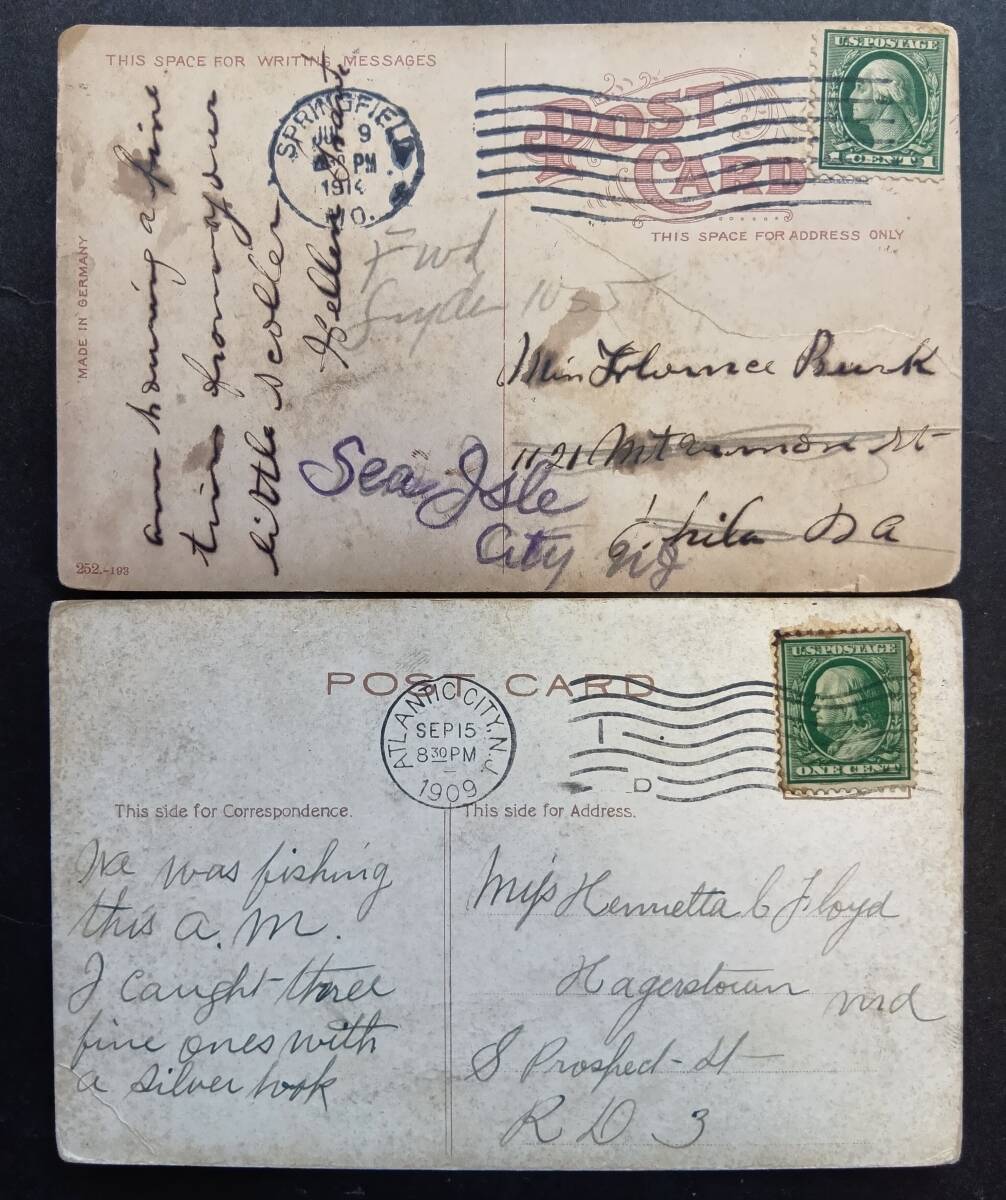 THIS SPACE FOR WRITING MESSAGES
U.S. POSTAGE
1 CENT 1
SPRINGFIELD
9
PM
1914
O.
POST CARD
THIS SPACE FOR ADDRESS ONLY
MADE IN GERMANY
am having a fine
time from your
little scoller
Hellen
Fwd
Snyder 1055
Miss Florence Burk
1121 Mt Vernon St
Phila PA
Sea Isle
City NJ
252.-193
POST CARD
U.S. POSTAGE
ONE CENT
ATLANTIC CITY, N.J.
SEP 15
8 30 PM
1909
1
D
This side for Correspondence.
This side for Address.
We was fishing
this A.M.
I caught three
fine ones with
a silver hook
Miss Henrietta C Floyd
Hagerstown Md
S Prospect St
R D 3